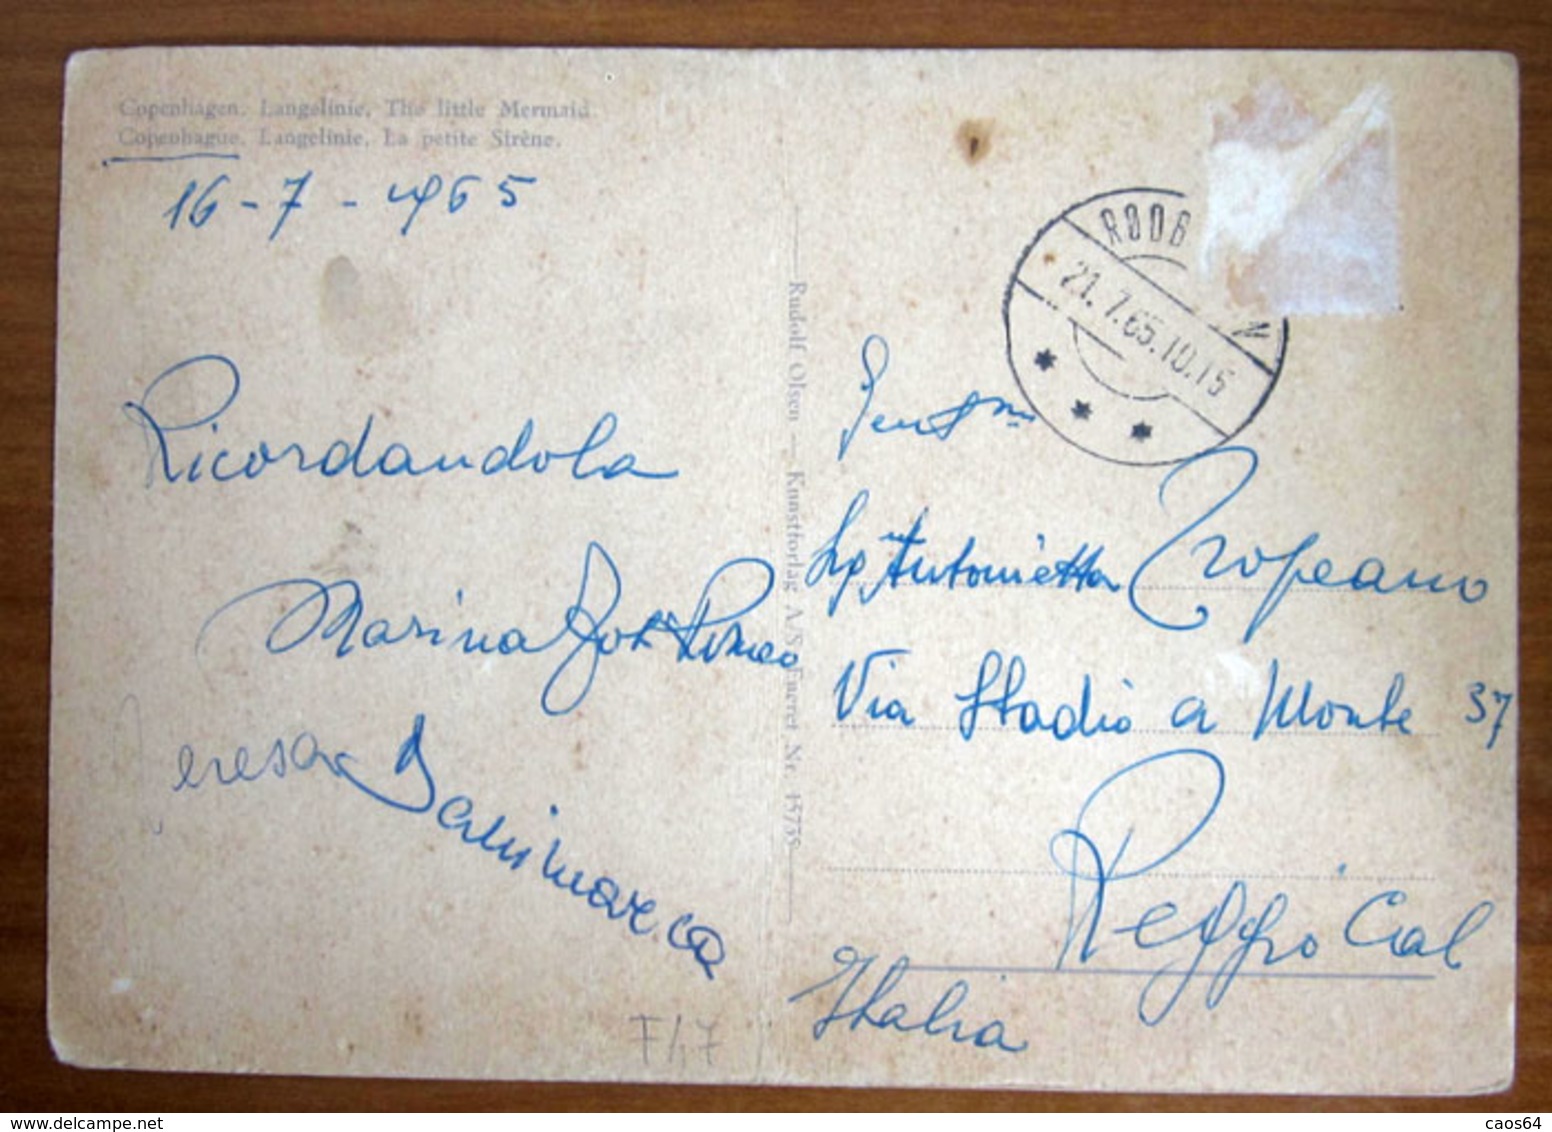 Copenhagen. Langelinie. The little Mermaid.
Copenhague. Langelinie. La petite Sirène.
16-7-1965
Ricordandola
Marina
Teresa Danimarca
F/17
Rudolf Olsen — Kunstforlag A/S. Eneret Nr. 15735
RØDB N
21.7.65.10.15
Gent ma
Sig Antonietta Tropeano
Via Stadio a Monte 37
Reggio Cal
Italia
www.delcampe.net
caos64